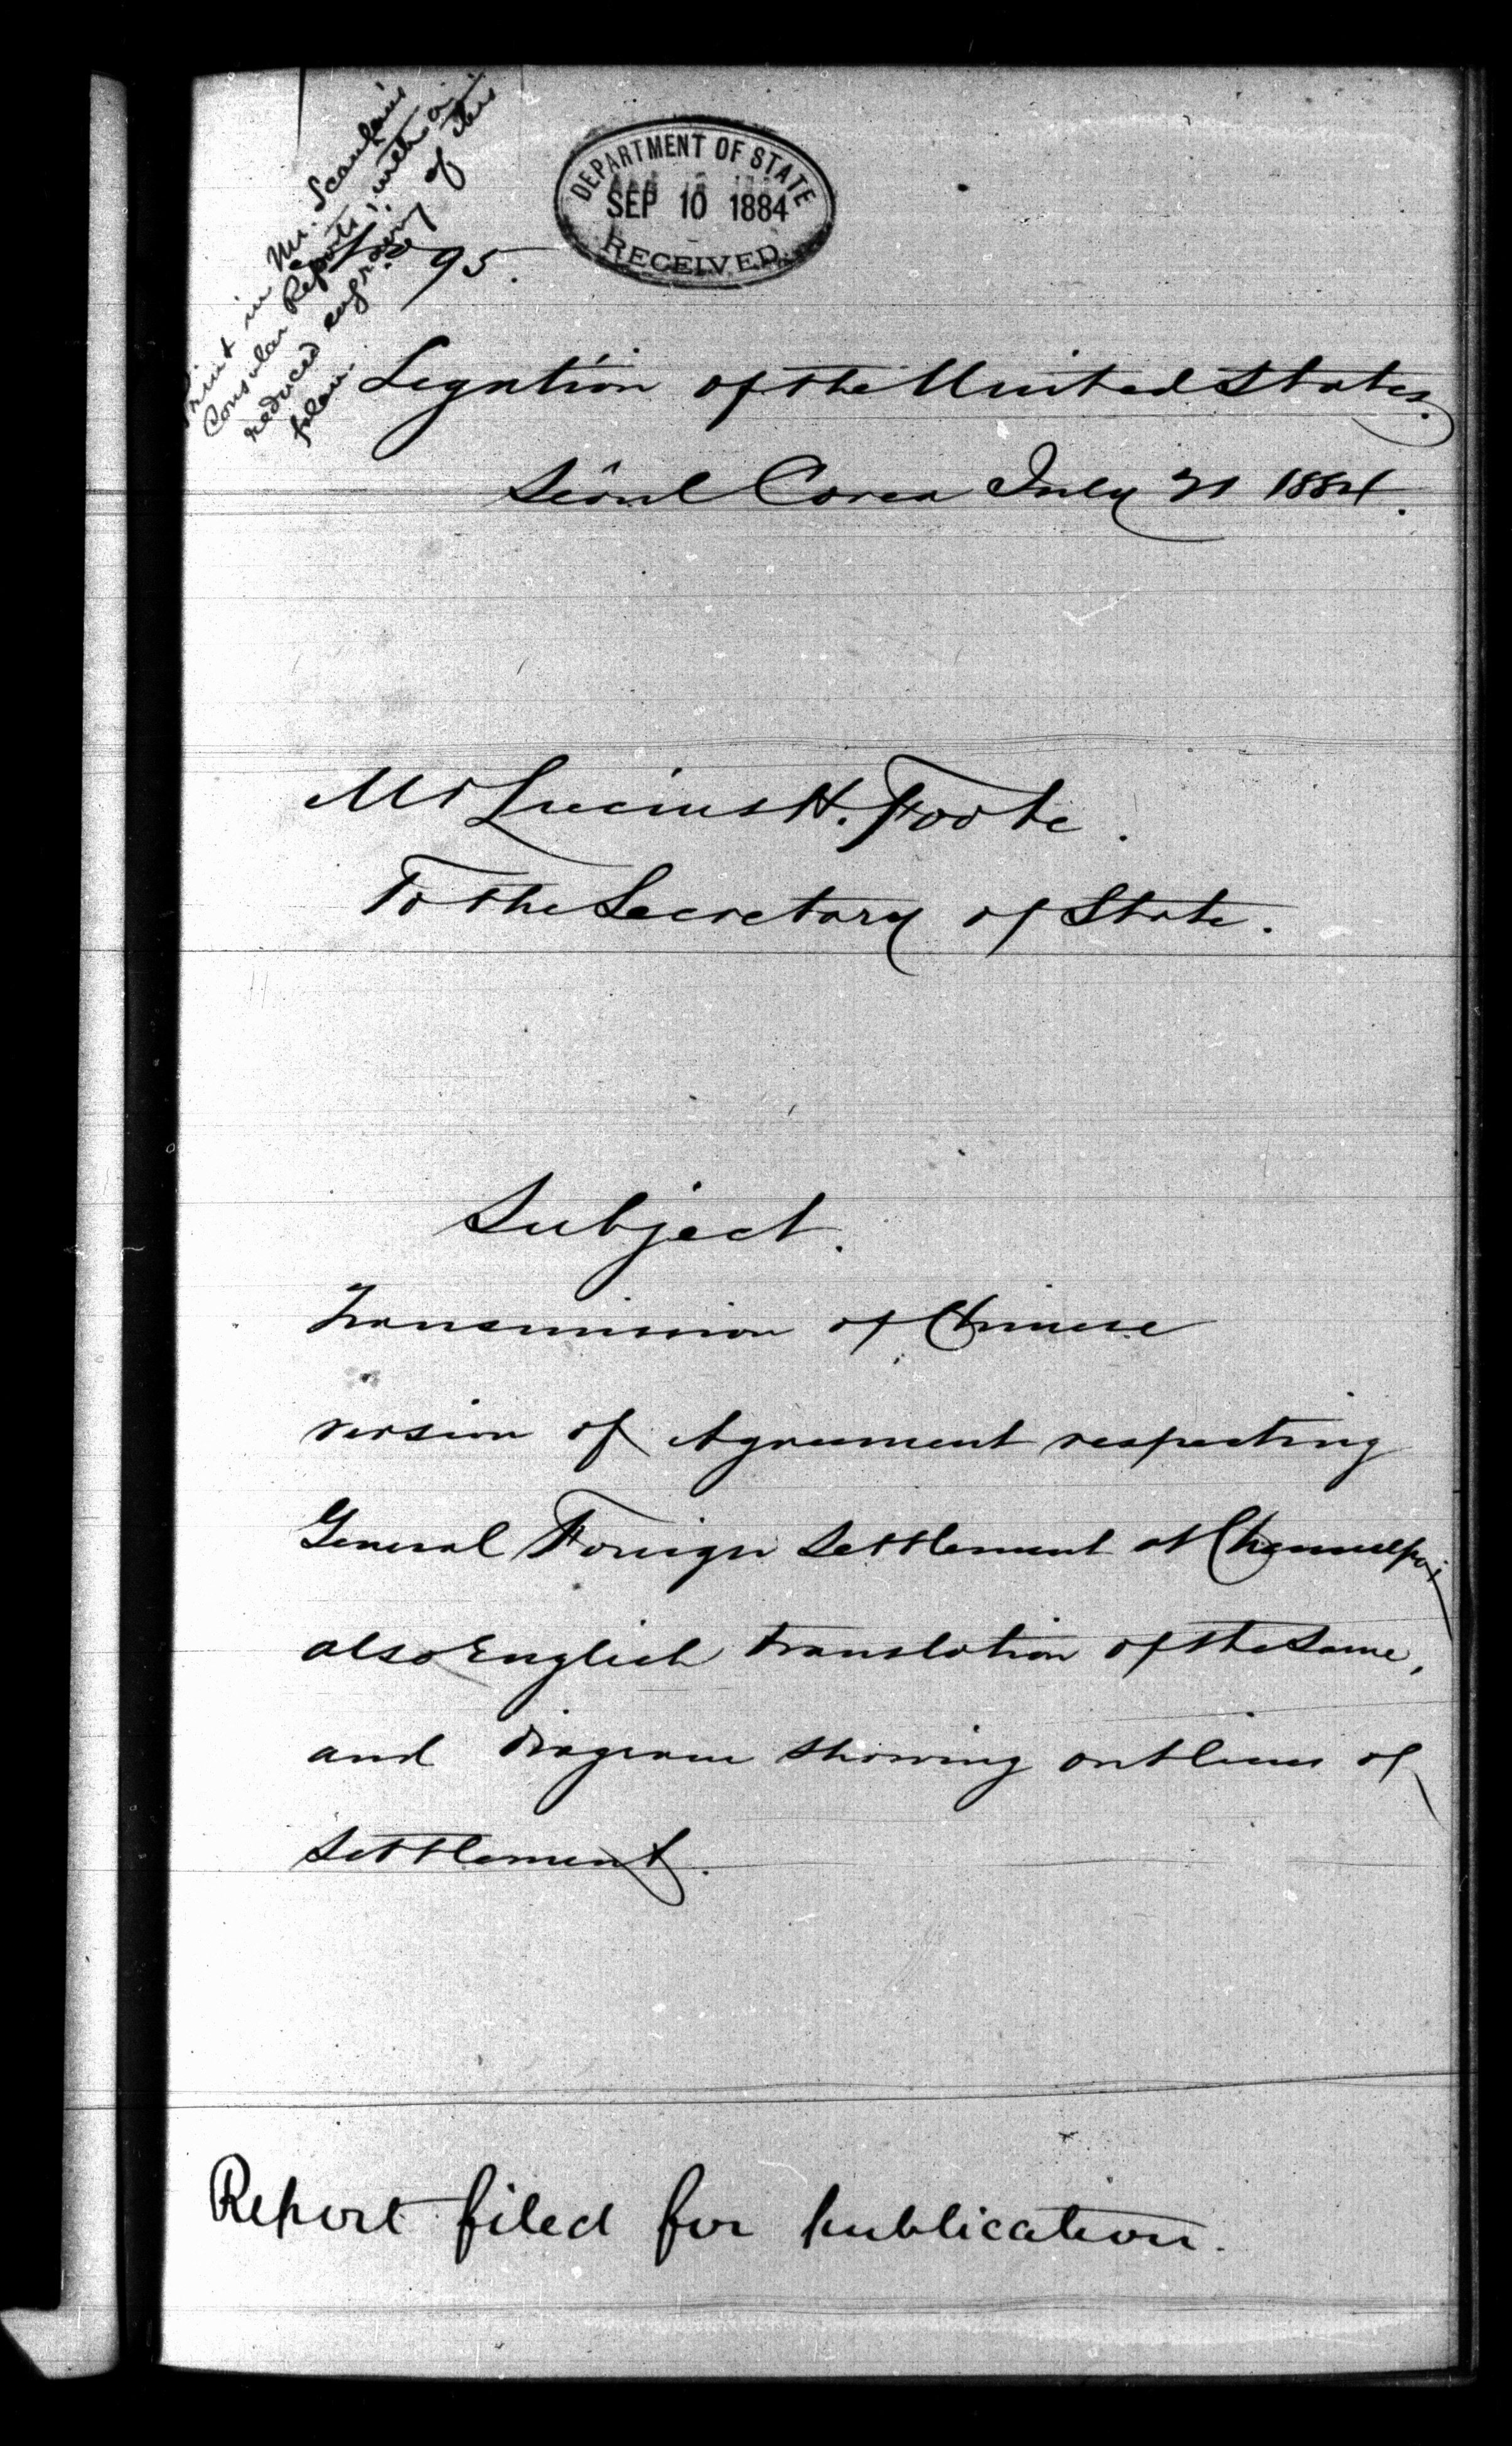 Print in Mr. Scanlan's
Consular Reports, with a
reduced engraving of the
plan.
DEPARTMENT OF STATE
SEP 10 1884
RECEIVED
No 95.
Legation of the United States.
Seoul Corea July 31 1884.
Mr Lucius H. Foote.
To the Secretary of State.
Subject.
Transmission of Chinese
version of Agreement respecting
General Foreign Settlement at Chemulpo;
also English translation of the same,
and diagram showing outlines of
settlement.
Report filed for publication.